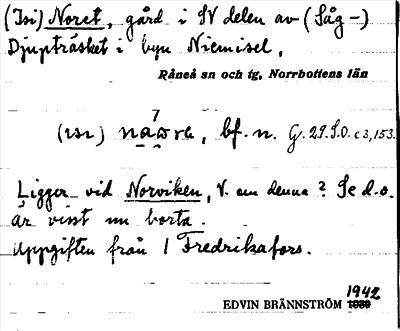 (Isi) Noret, gård i SV delen av (Såg-)
Djupträsket i byn Niemisel.
Råneå sn och tg, Norrbottens län
bf. n. G. 29. S.O. c 3, 153.
Ligger vid Norviken, V. om denna? Se d.o.
är visst nu borta.
Uppgiften från 1 Fredrikafors.
1942
EDVIN BRÄNNSTRÖM 1939